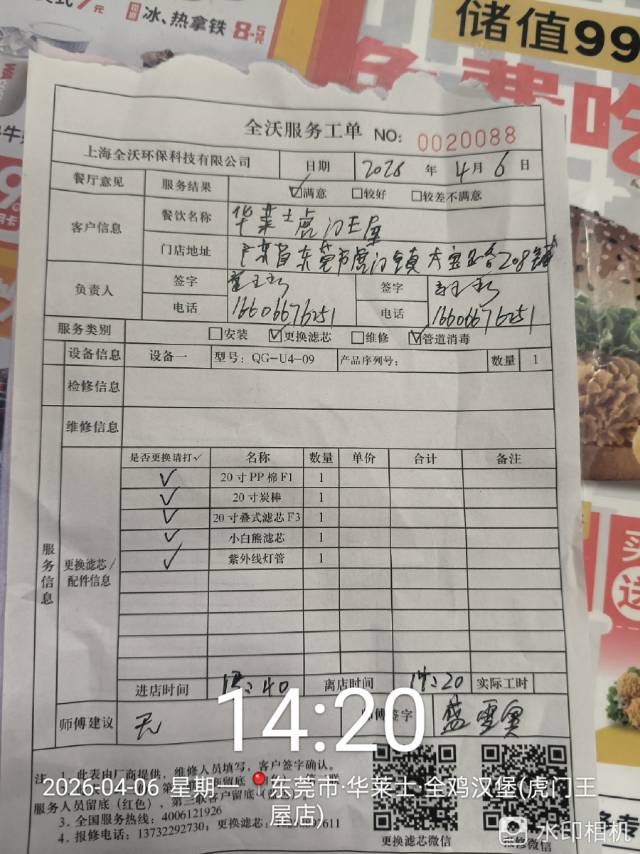 冰、热拿铁 8.5元
储值99
免费吃
全沃服务工单 NO: 0020088
上海全沃环保科技有限公司 日期 2026 年 4 月 6 日
餐厅意见 服务结果 ☑满意 □较好 □较差不满意
客户信息 餐饮名称 华莱士虎门王屋
门店地址 广东省东莞市虎门镇大宝路208铺
负责人 签字 签字
电话 16606676251 电话 16606676251
服务类别 □安装 ☑更换滤芯 □维修 ☑管道消毒
设备信息 设备一 型号: QG-U4-09 产品序列号: 数量 1
检修信息
维修信息
服务信息
更换滤芯/配件信息
是否更换请打✓ 名称 数量 单价 合计 备注
✓ 20寸PP棉F1 1
✓ 20寸炭棒 1
✓ 20寸叠式滤芯F3 1
✓ 小白熊滤芯 1
✓ 紫外线灯管 1
进店时间 13:40 离店时间 14:20 实际工时
师傅建议 无 师傅签字
14:20
注: 1. 此表由厂商提供,维修人员填写,客户签字确认。
2026-04-06 星期一 东莞市·华莱士·全鸡汉堡(虎门王屋店)
服务人员留底(红色),第三联客户留底
3. 全国服务热线: 4006121926
4. 报修电话: 13732292730; 更换滤芯
更换滤芯微信 报修微信
水印相机